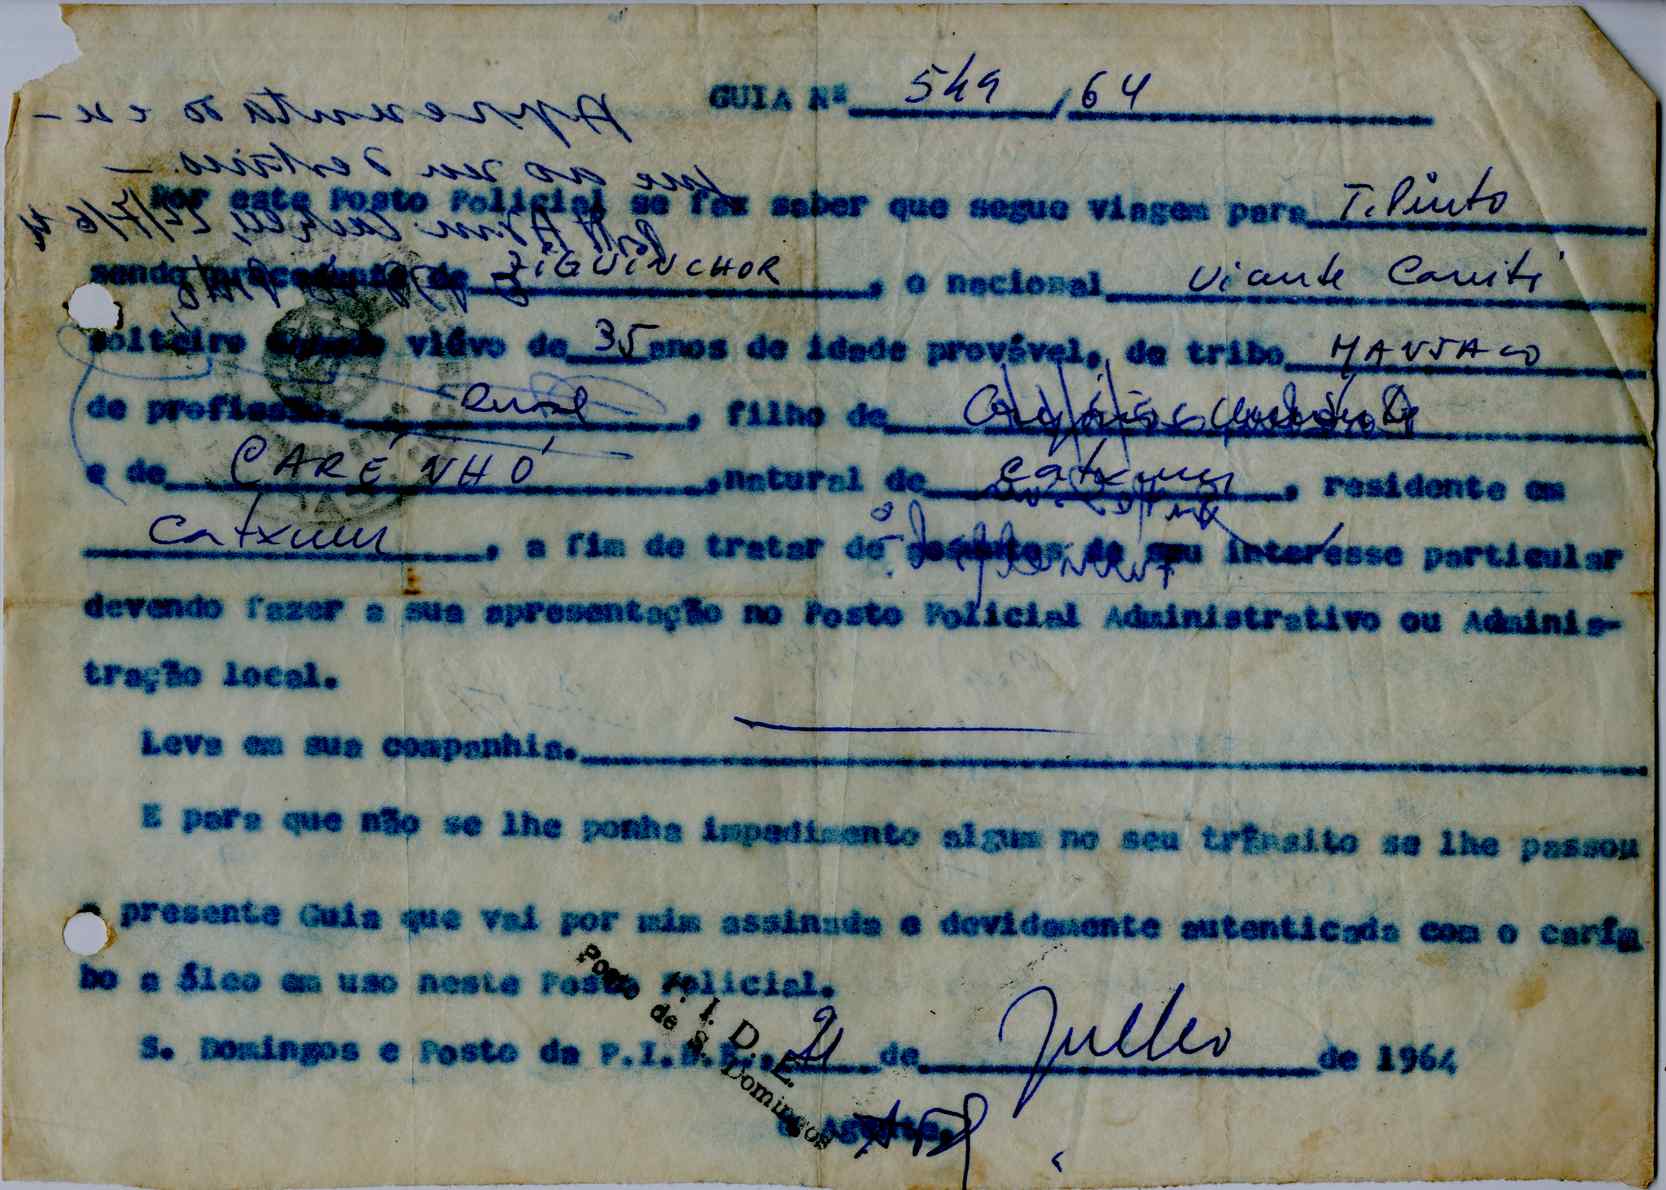 GUIA Nº 549 / 64
Por este Posto Policial se faz saber que segue viagem para T. Pinto
sendo procedente de ZIGUINCHOR, o nacional Vicente Caniti
solteiro viúvo de 35 anos de idade provável, da tribo MANJACO
de profissão. Rural, filho de
e de CARÉ NHÓ, natural de Catxuur, residente em
Catxuur, a fim de tratar de assuntos de seu interesse particular
devendo fazer a sua apresentação no Posto Policial Administrativo ou Adminis-
tração local.
Leva em sua companhia.
E para que não se lhe ponha impedimento algum no seu trânsito se lhe passou
a presente Guia que vai por mim assinada e devidamente autenticada com o carím
bo a óleo em uso neste Posto Policial.
S. Domingos e Posto da P.I.D.E., 21 de Julho de 1964
P. I. D. E.
Posto de S. Domingos
O Agente,